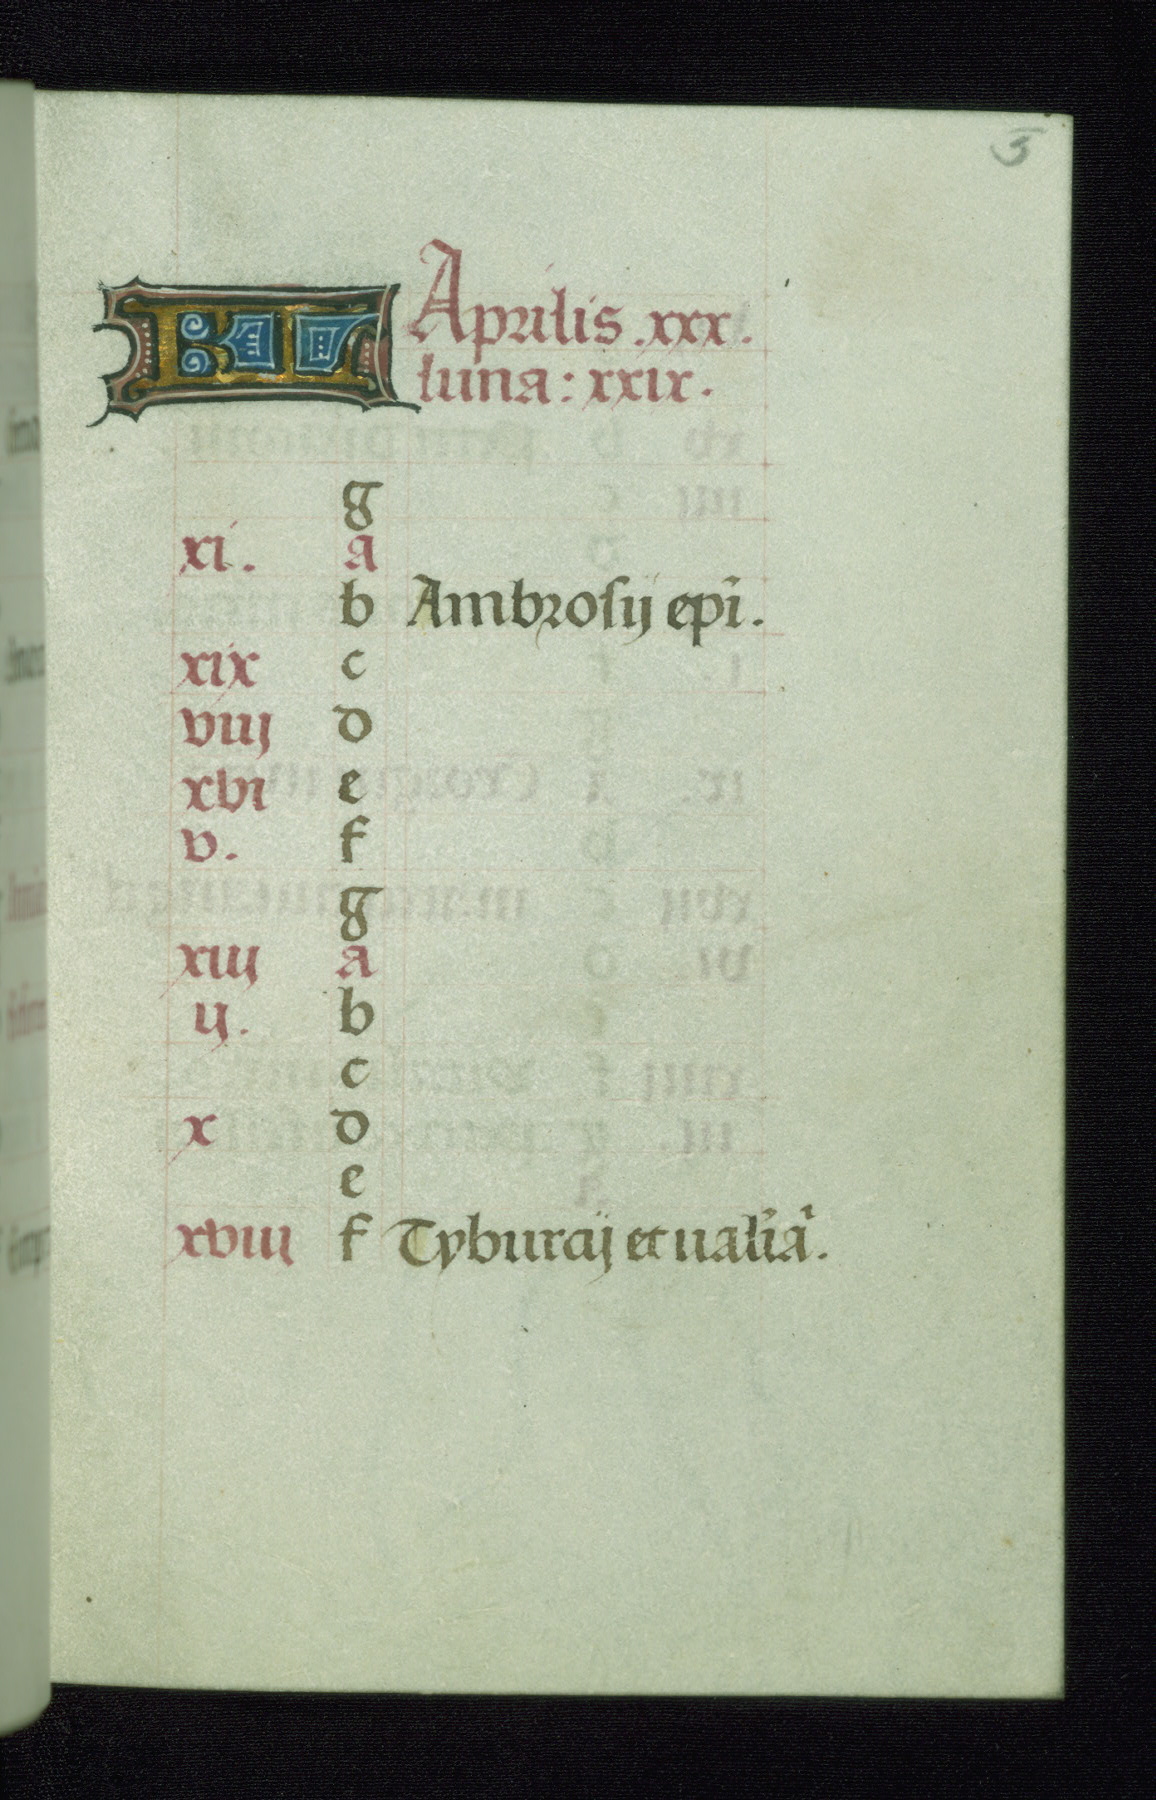 3
KL Aprilis .xxx.
luna: xxix.
g
xi. a
b Ambrosij epi.
xix c
viij d
xvi e
v. f
g
xiij a
ij. b
c
x d
e
xviij f Tyburcij et ualia.